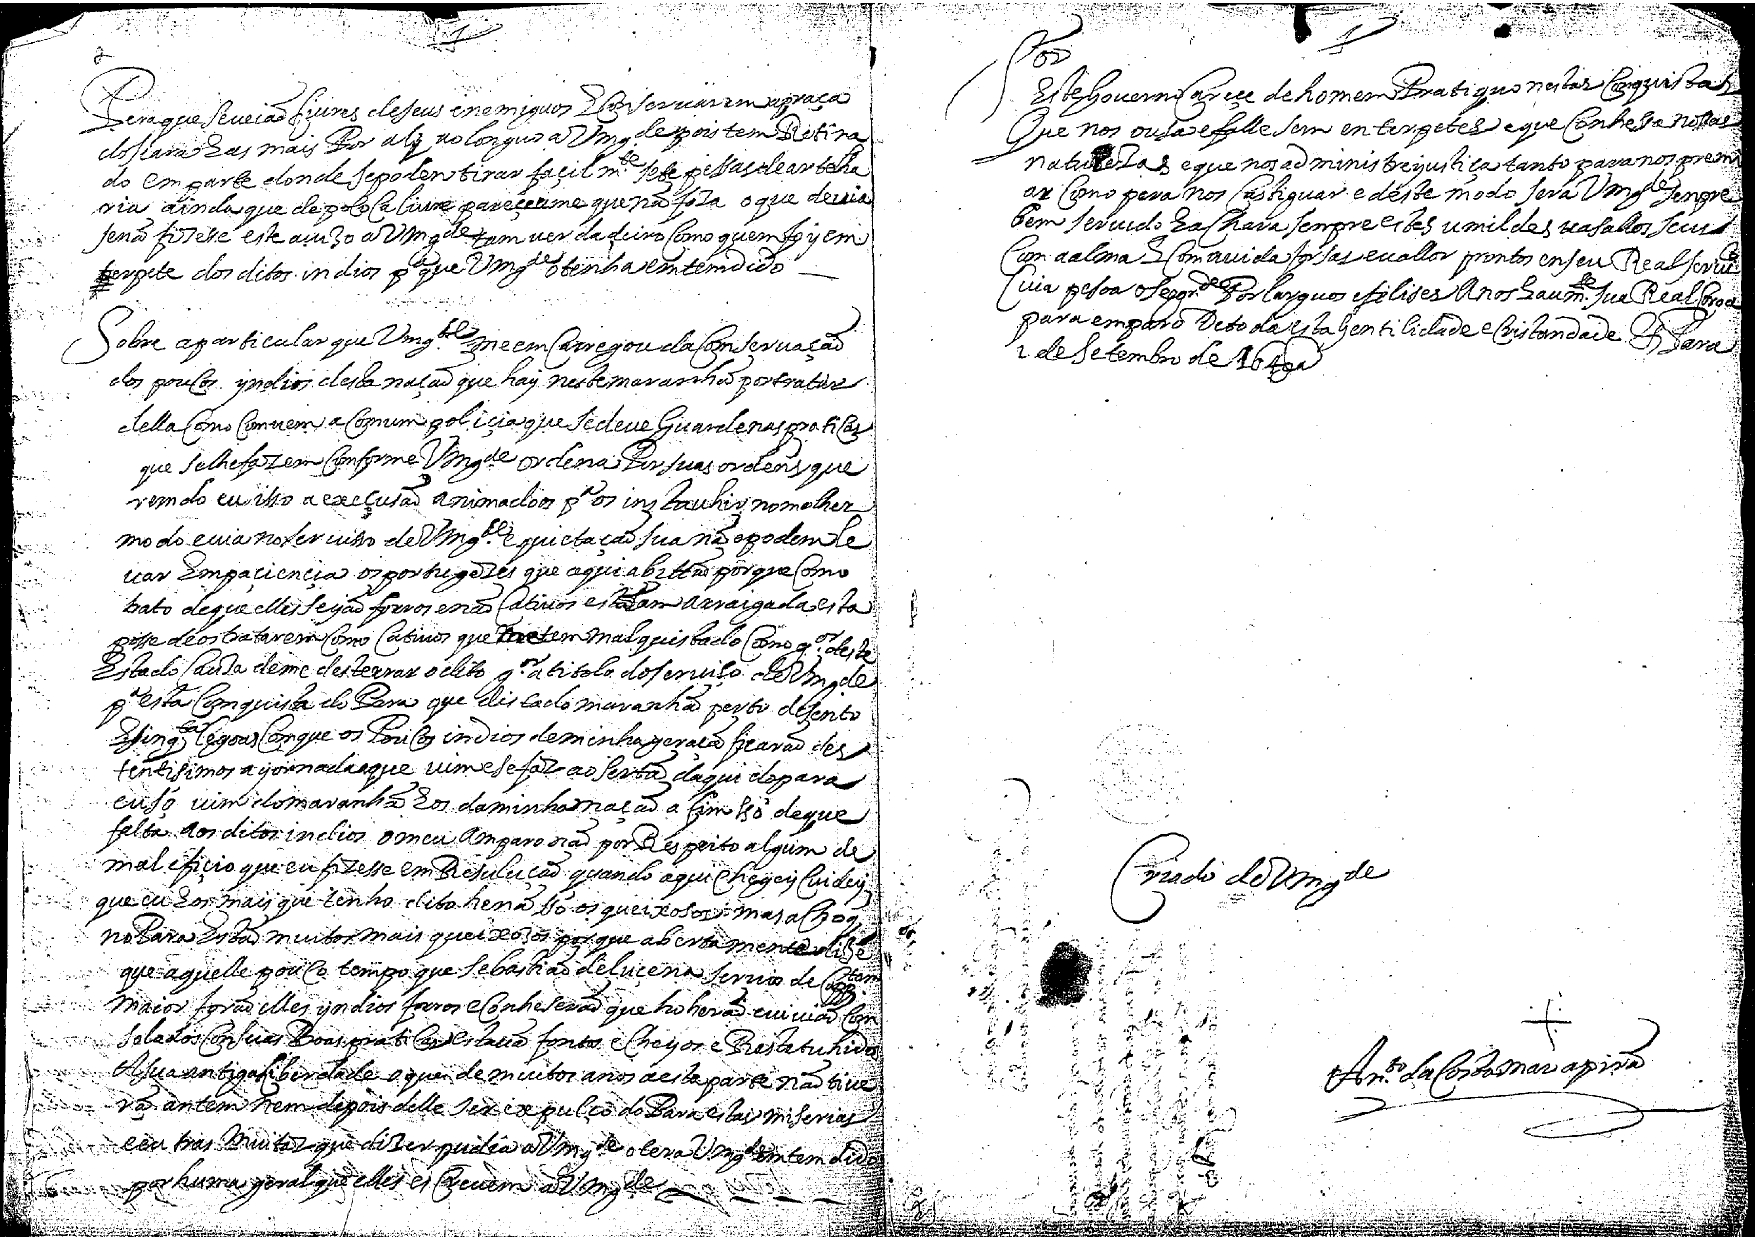 Pera que se veião livres de seus enemiguos E Conservarem a praça
do seara E as mais Por alg ao longuo a Vmg.de depois tem Retira
do em parte donde se podem tirar façil m.te sete pessas de artelha
ria ainda que de poco calivre pareçeume que não fosa o que devia
senão fizesse este avizo a Vmg.de tam verdadeiro Como quem foy em
terpete dos ditos indios p.a que Vmg.de o tenha emtemdido
Sobre a particular que Vmg.de me emCarregou da ComServação
dos poucos yndios desta nação que hay neste maranhão por tratar
della Como Convem a Comum poliçia que se deve Guardenas praticas
que se lhe fazem Comforme Vmg.de ordena Por suas ordens, que
remdo eu isso a execusão animadoos p.a os instruhir no molher
modo e via no serviso de Vmg.de e quietação sua não o podem le
var Em paçiençia os portugezes que aqui abittão porque Como
trato de que elles sejão forros e não Cativos está tam arraigada esta
posse de os tratarem Como Cativos que me tem malquistado Com o g.or deste
Estado Cauza de me desterrar o dito g.or a titolo do serviço de Vmg.de
p.a esta Comquista do Para que dista do maranhão perto de sento
E sinq.ta legoas Com que os Poucos indios de minha geração ficarão des
tentisimos a jornada a que vim e se faz ao sertão daqui do para
eu só vim do maranhão E os da minha nação a fim só de que
falta aos ditos indios o meu Amparo não por Respeito algum de
malefiçio que eu fizesse em Resulução quando aqui Chegey Cuidey
que eu E os mais que tenho dito herão só os queixosos mas acho q
no Para Estão muitos mais queixosos porque abertamente disse
que aquelle pouco tempo que sebastião de lucena servio de Cap.tam
maior forão elles yndios forros e Conheserão que ho herão e vivião Com
solados Com suas Boas praticas estavão fortos e Cheyos e Restatuhidos
A sua antiga liberdade o que de muitos anos a esta parte não tive
rão antem nem depois delle ser expulço do Para estas miserias
e outras Muitas que dizer pudia a Vmg.de o tera Vmg.de emtemdido
por huma geral que elles esCrevem a Vmg.de
Por
Este Governo Careçe de homem Pratiquo nestas Comquistas
Que nos ouva e falle sem enterpetes e que Conhesa nossas
naturezas e que nos administre justiça tanto para nos premi
ar Como pera nos Castiguar e deste modo sera Vmg.de senpre
bem servido E achara sempre estes umildes vasallos seus
Com a alma E Com a vida forsas e vallor prontos en seu Real servi.co
Cuia pesoa o S.or g.de Por larguos e felises Anos E aum.te sua Real Coroa
para emparo De toda esta Gentilidade e Cristandade Para
2 de Setembro de 1649 a
Criado de Vmg.de
Ant.o da Costa marapirã